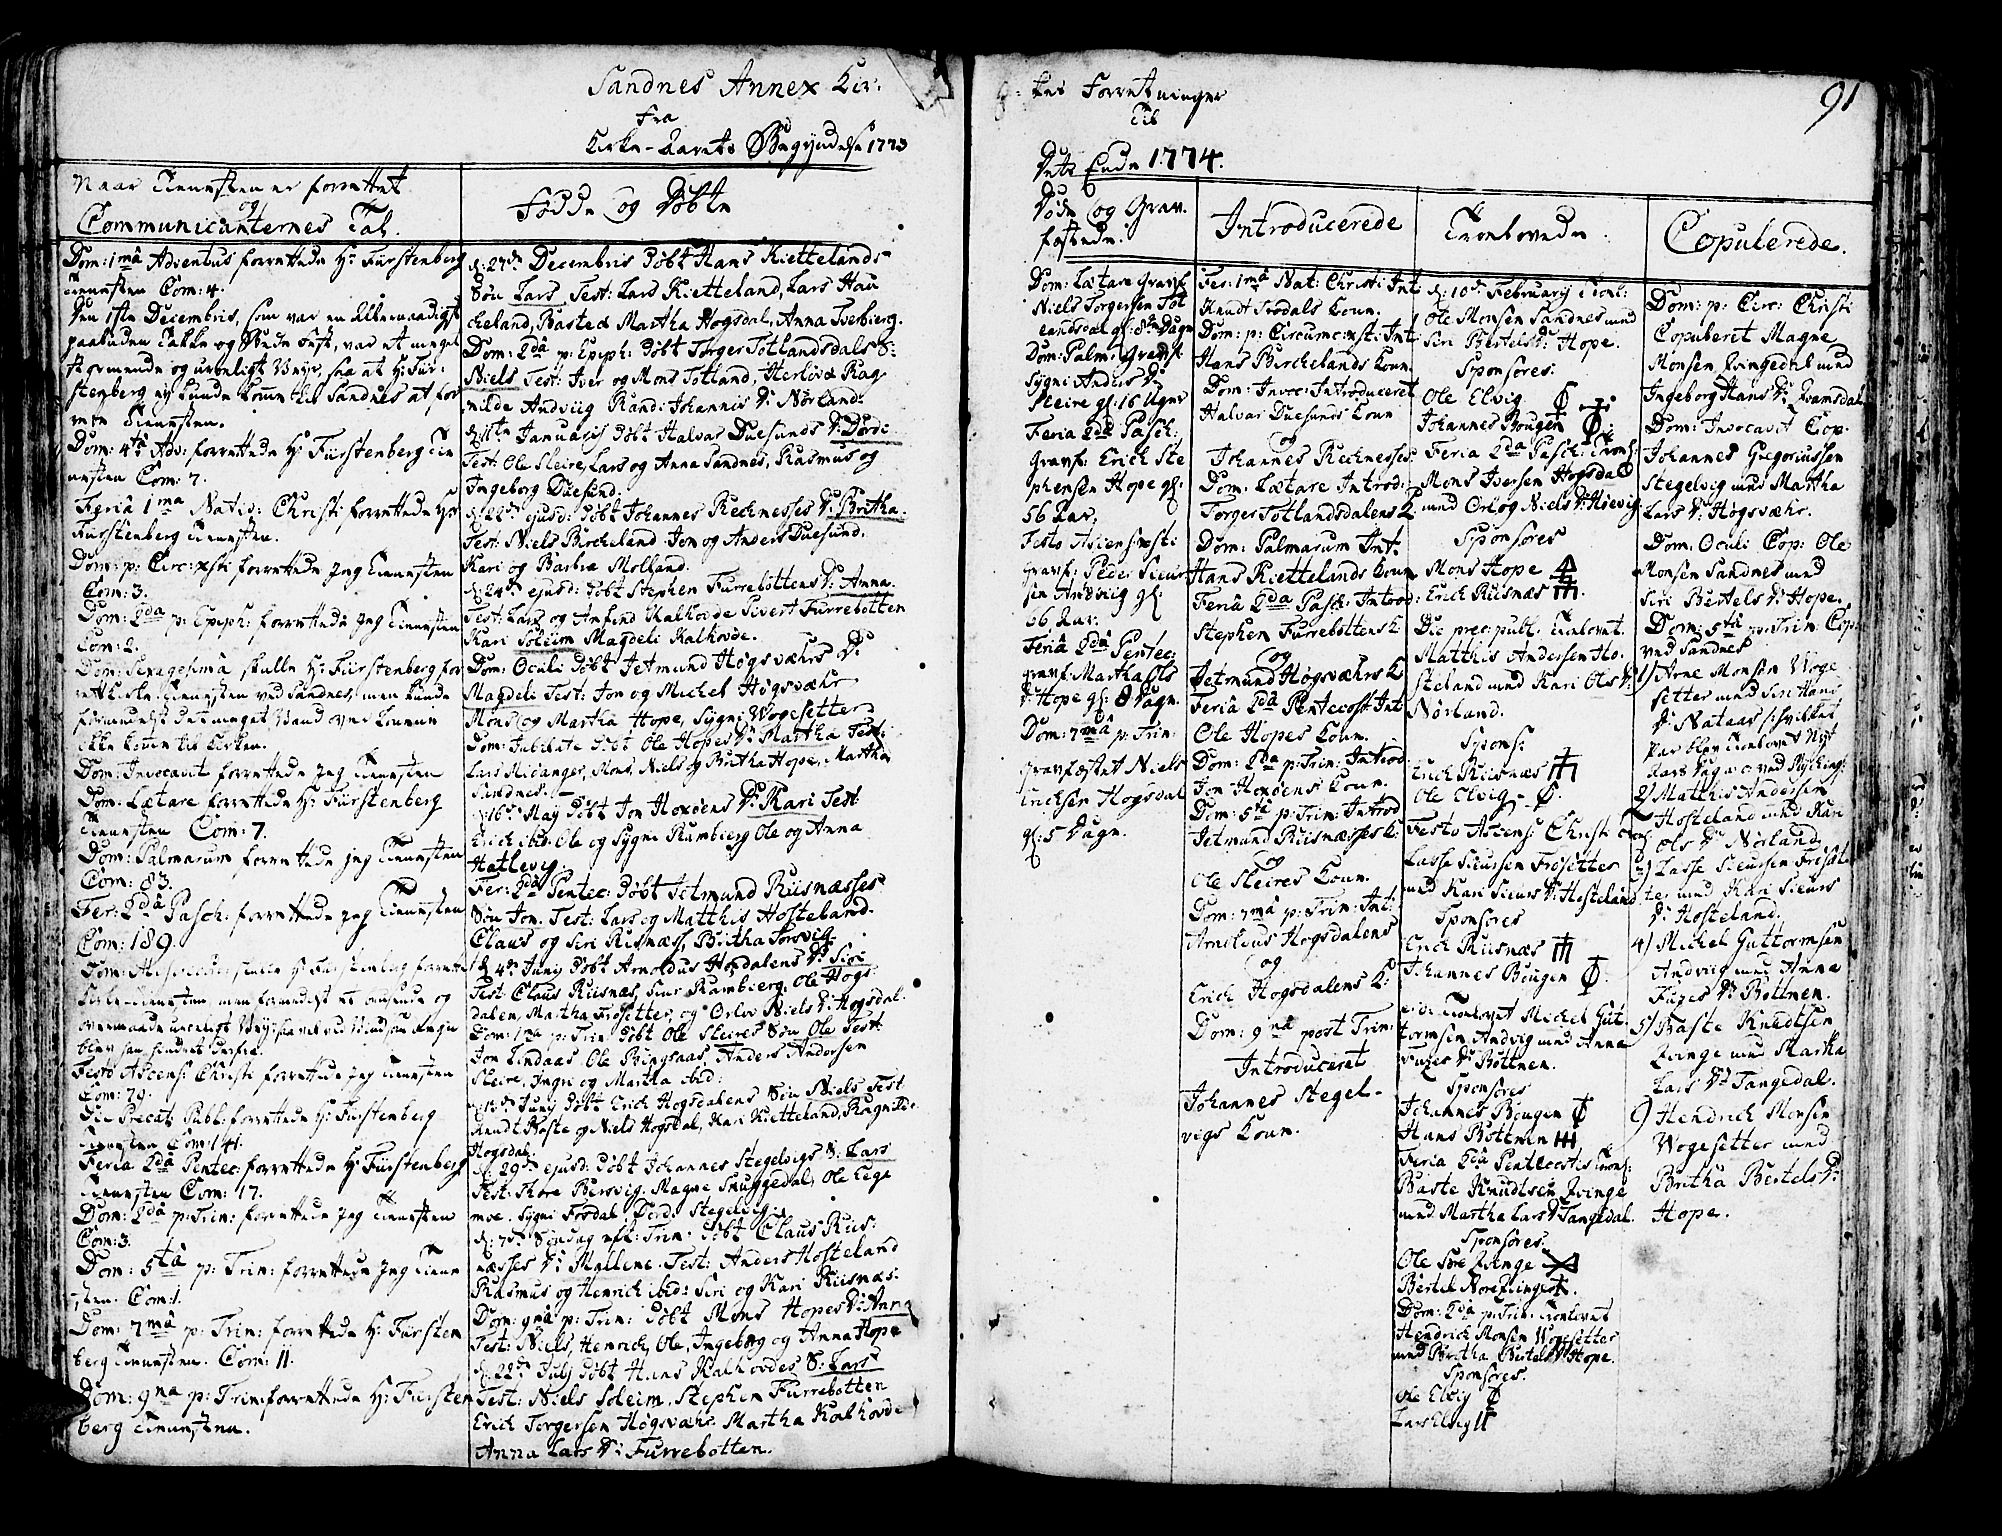 Sandnes Annex Kir-
Fra
Kirke-Aarets Begyndelse 1773
Naar Tienesten er forrettet
og
Communicanternes Tal.
Dom: 1mâ Adventus forrettede Hr Fürstenberg
Tienesten Com: 4.
Den 1ste Decembris, som var en Allernaadigst
paabuden Takke og Bede Fest, var et meget
stormende og urolligt Veyr, saa at Hr Für-
stenberg ej kunde komme til Sandnes at for
rette Tienesten.
Dom: 4tâ Adv: forrettede Hr Fürstenberg Tie
nesten Com: 7.
Feriâ 1ma Nativ: Christi forrettede Hr
Fürstenberg Tienesten.
Dom: p: Circ: xsti forrettede jeg Tienesten
Com: 3.
Dom: 2da p: Epiph: forrettede jeg Tienesten
Com: 2.
Dom: Sexagesimâ skulle Hr Fürstenberg for
rettet Tienesten ved Sandnes, men kunde
formedelst det meget Vand over
ikke komme til Kirken.
Dom: Invocavit forrettede jeg Tienesten
Dom: Lætare forrettede Hr Fürstenberg
Tienesten Com: 7.
Dom: Palmarum forrettede jeg Tienesten
Com: 83.
Fer: 2dâ Pasch: forrettede jeg Tienesten
Com: 189.
Dom: skulle Hr Fürstenberg forrettet
Tienesten men formedelst et og
overmaade urolligt Veyr saavel ved Vind, som Regn
blev han hindret derfra.
Festo Ascens: Christi forrettede jeg Tienesten
Com: 79.
Die Precat: Publ: forrettede Hr Fürstenberg
Tienesten Com: 141.
Feria 2dâ Pentec: forrettede Hr Fürstenberg
Tienesten Com: 17.
Dom: 2dâ p: Trin: forrettede jeg Tienesten
Com: 3.
Dom: 5tâ p: Trin: forrettede jeg Tiene
sten. Com: 1.
Dom: 7mâ p: Trin: forrettede Hr Fürsten
berg Tienesten. Com: 11.
Dom: 9na p: Trin: forrettede Hr Fürsten
berg Tienesten.
Fødde og Døbte
d: 27de Decembris døbt Hans Kiettelands
Søn Lars, Test: Lars Kietteland, Lars Hau
cheland, Baste & Martha Hogsdal, Anna Tverbierg.
Dom: 2dâ p: Epiph: døbt Torger Totlandsdals S:
Niels Test: Iver og Mons Totland, Herlov & Rag
nilde Andviig Rand: Johannis Dr Nørland.
d: 11te Januarii døbt Halvar Duesunds Dr: Dorde
Test: Ole Sleire, Lars og Anna Sandnes, Rasmus og
Ingeborg Duesund.
d: 22de ejusd: døbt Johannes Rechnesses Dr: Britha.
Test: Niels Bircheland Jon og Anders Duesund.
Kari og Barbra Molland.
d: 24de ejusd: døbt Stephen Furrebottens Dr: Anna.
Test: Lars og Amfind Kalhovde Sivert Furrebotten
Kari Soleim Magdeli Kalhovde.
Dom: Oculi døbt Jetmund Høgsværs Dr
Magdeli Test: Jon og Michel Høgsvæhr
Mons og Martha Hope, Sygni Wogesetter
Dom: Jubilate døbt Ole Hopes Dr Martha Test:
Lars Misanger, Mons, Niels og Britha Hope, Martha
Sandnes.
d: 16de Maji døbt Jon Hoxdens Dr: Kari Test
Erich ibid: Ole og Sygni Rambierg Ole og Anna
Hatlevig.
Fer: 2dâ Pentec: døbt Jetmund Riisnæsses
Søn Jon. Test: Lars og Matthis Hosteland.
Claus og Siri Riisnæss, Britha Torsvig.
d: 4de Junij døbt Arnoldus Hogdalens Dr: Siri
Test: Claus Riisnæs, Siur Rambierg, Ole Hogs
dalen, Martha Frosetter, og Orlov Niels Dr: Hogsdal.
Dom: 1ma p: Trin: døbt Ole Sleires Søn Ole Test:
Jon Lindaas Ole Bingsaas, Anders Andersen
Sleire, Ingri og Martha ibid:
d: 13de Junij døbt Erich Hogsdalens Søn Niels Test
Knudt Baste og Niels Hogsdal, Kari Kietteland, Ragnilde
Hogsdal.
d: 29de ejusd: døbt Johannes Stegelvigs S: Lars
Test: Tore Bersvig, Magne Snuggedal, Ole Lege
moe. Sygni Fosdal, Dord: Stegelvig.
d: 7de Søndag eft: Trin: døbt Claus Riis:
næsses Dr: Mallene. Test: Anders Hosteland
Rasmus og Henrich ibid: Siri og Kari Riisnæs.
Dom: 9nâ p: Trin: døbt Mons Hopes Dr: Anna
Test: Niels, Henrich, Ole, Ingeborg og Anna Hope
d: 22de Julj døbt Hans Kalhovdes S: Lars
Test: Niels Soleim, Stephen Furrebotten
Erich Torgersen Høgsvæhr. Martha Kalhovde
Anna Lars Dr: Furrebotten.
kes Forretninger
Til
Dets Ende 1774.
91
Døde og Grav.
festede.
Dom: Lætare Gravf.
Niels Torgersen Tot
landsdal gl: 8te Dagn
Dom: Palm: Gravf.
Sygni Anders Dr
Sleire gl: 16 Uger
Feria 2dâ Pasch:
Gravf: Erich Ste
phensen Hope gl:
56 Aar.
Festo Ascens: xsti
gravf: Peder Siur
sen Andviig gl:
66 Aar.
Feriâ 2dâ Pentec:
gravf. Martha Ols
Dr Hope gl: 8 Dagn.
Dom: 7mâ p: Trin:
Gravfæstet Niels
Erichsen Hogsdal
gl: 5 Dagn.
Introducerede
Fer: 1mâ Nat: Christi Int
Knudt Trodals Koun.
Dom: p: Circumc: xsti: Int
Hans Birchelands Koun.
Dom: Invoc: Introduceret
Halvar Duesunds Koun
og
Johannes Rechnesses
Dom: Lætare Introd:
Torger Totlandsdalens K
Dom: Palmarum Int:
Hans Kiettelands Koun
Feriâ 2da Pasch: Introd:
Stephen Furrebottens K:
og
Jetmund Høgsværs K
Feriâ 2dâ Pentecost Int
Ole Hopes Koun.
Dom: 2da p: Trin: Introd
Jon Hoxdens Koun.
Dom: 5tâ p: Trin: Introd
Jetmund Riisnæsses K:
og
Ole Sleires Koun.
Dom: 7mâ p: Trin: Int:
Arnoldus Hogsdalens
og
Erich Hogsdalens K:
Dom: 9nâ post Trin:
Introduceret
Johannes Stegel-
vigs Koun.
Trolovede.
d: 10de Februarij Trol:
Ole Monsen Sandnes med
Siri Bertels Dr: Hope.
Sponsores:
Ole Elvig
Johannes Bougen
Feria 2da Pasch: Trol:
Mons Iversen Hogsdal
med Orlog Niels Dr: Hievig
Sponsores
Mons Hope
Erich Riisnæs
Die prec: publ: Trolovet.
Matthis Andersen Ho-
steland med Kari Ols Dr:
Nørland.
Spons:
Erich Riisnæs
Ole Elvig
Festo Ascens: Christi
Lasse Siursen Frosetter
med Kari Siurs Dr: Hosteland
Sponsores
Erich Riisnæs
Johannes Bougen
eod: Trolovet Michel Gut
tormsen Andvig med Anna
Fuxes Dr: Bottnen.
Sponsores
Johannes Bougen
Hans Bottnen
Feria 2dâ Pentecostes Trol:
Baste Knudtsen Qvinge
med Martha Lars Dr Tangedal.
Sponsores.
Ole Søre Qvinge
Bertel Nore Qvinge
Dom: 2dâ p: Trin: Trolovet
Hendrich Monsen Wogesetter
med Britha Bertels Dr Hope.
Sponsores.
Ole Elvig
Lars Elvig
Copulerede.
Dom: p: Circ: Christi
Copuleret Magne
Monsen Qvingedal med
Ingeborg Hans Dr: Qvamsdal
Dom: Invocavit Cop.
Johannes Gregoriussen
Stegelvig med Martha
Lars Dr: Høgsvæhr.
Dom: Oculi Cop: Ole
Monsen Sandnes med
Siri Bertels Dr: Hope.
Dom: 5tâ p: Trin: Copu
ved Sandnes
1) Arne Monsen Woge
setter med Siri Hans
Dr Nataas /: hvilket
Par blev Trolovet Nyt
Aars Dag ved
2) Matthis Andersen
Hosteland med Kari
Ols Dr Nørland.
3) Lasse Siursen Froset
ter med Kari Siurs
Dr Hosteland.
4) Michel Guttormsen
Andviig med Anna
Fuxes Dr Bottnen.
5) Baste Knudtsen
Qvinge med Martha
Lars Dr Tangedal.
Hendrich Monsen
Wogesetter med
Britha Bertels Dr:
Hope.